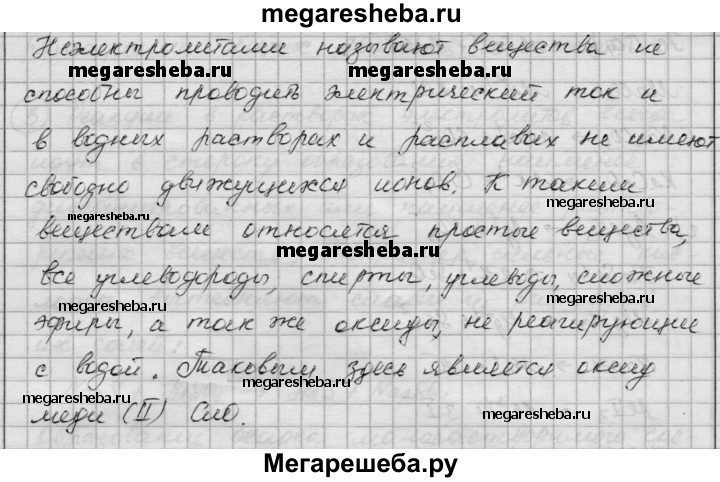 megaresheba.ru
Неэлектрометами называют вещества не
megaresheba.ru megaresheba.ru
способны проводить электрический ток и
в водных растворах и расплавах не имеют
свободно движущихся ионов. К таким
megaresheba.ru megaresheba.ru
веществам относятся простые вещества,
megaresheba.ru
все углеводороды, спирты, углеводы, сложные
megaresheba.ru megaresheba.ru
эфиры, а так же оксиды, не реагирующие
с водой. Таковым здесь является оксид
megaresheba.ru megaresheba.ru
меди (II) CuO.
Мегарешеба.ру